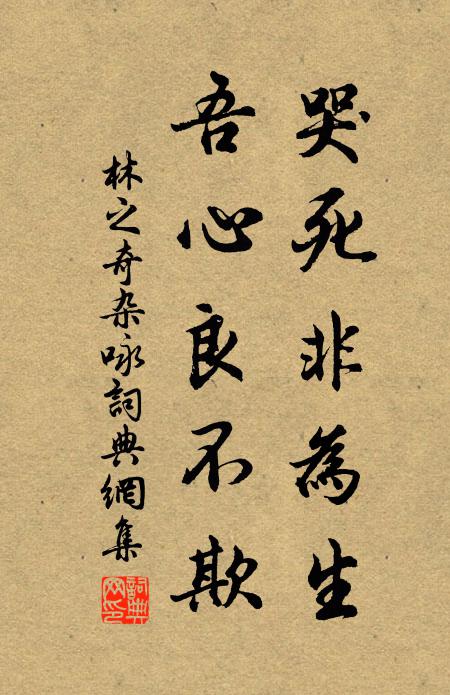 哭死非為生
吾心良不欺
林之奇杂咏詞典網集
詞典网印